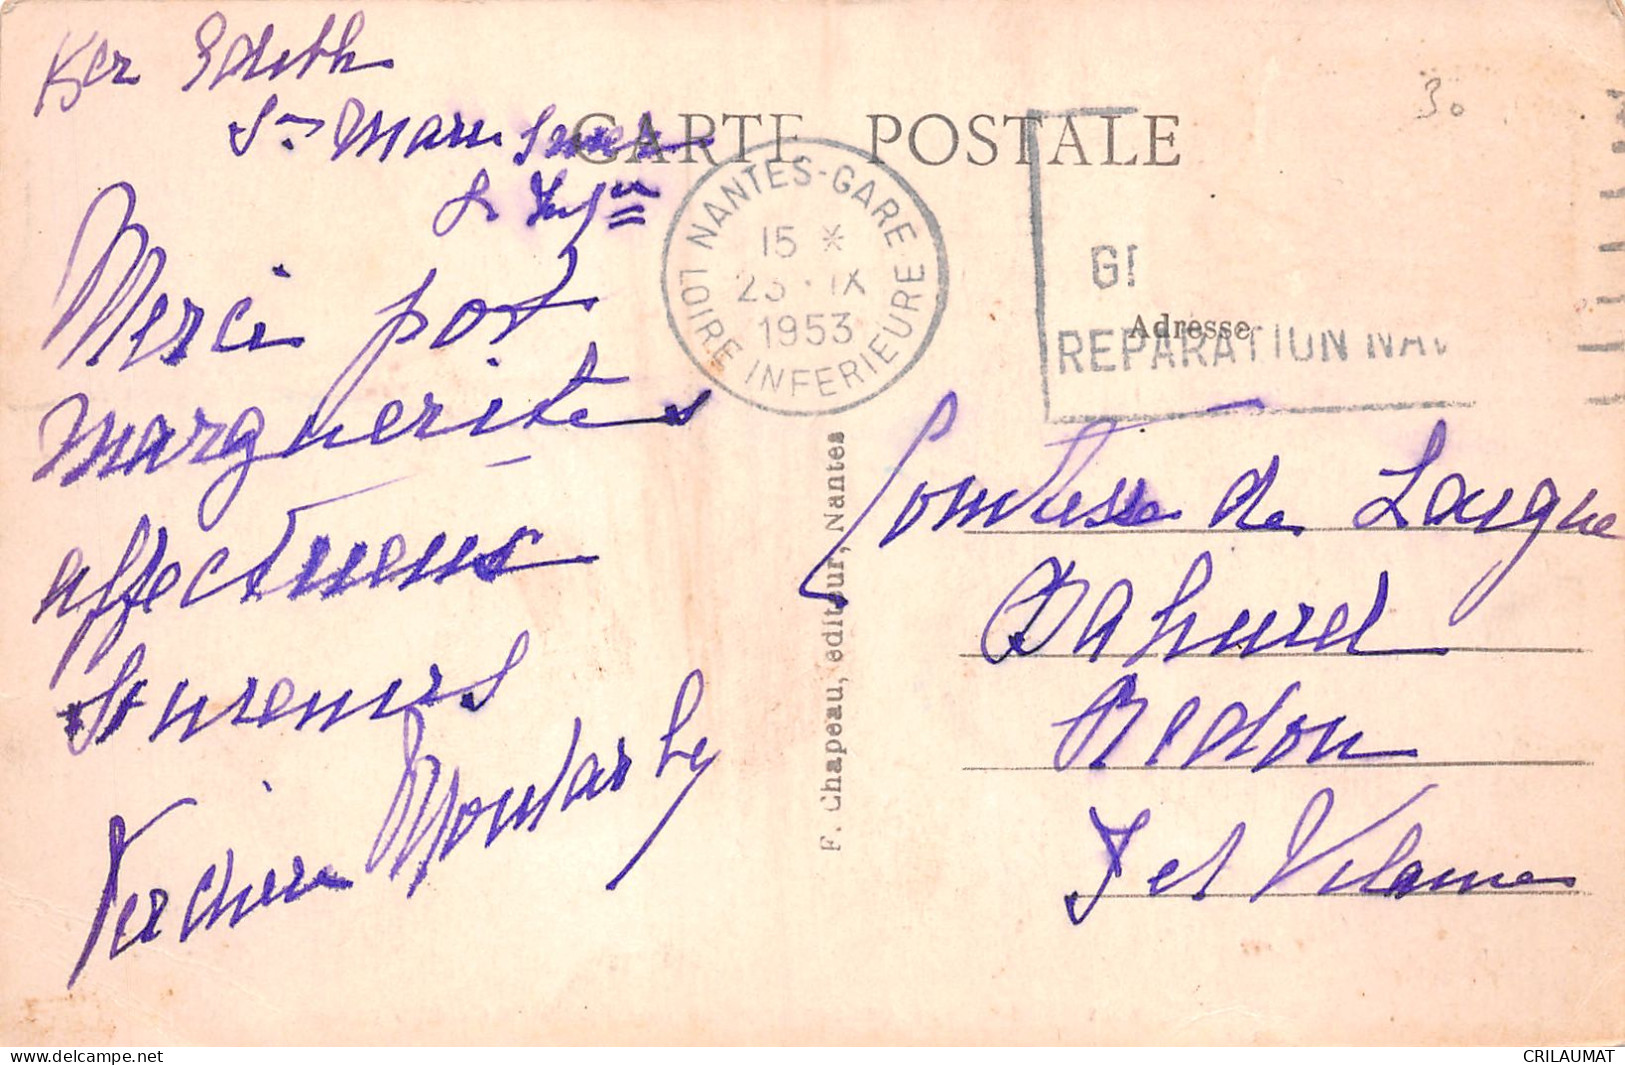 Ker Edith
Ste Marie sur mer
CARTE POSTALE
NANTES-GARE
15 *
23 · IX
1953
LOIRE INFERIEURE
30
GI
REPARATION NAV
Adresse
Merci pour
marguerites
affectueux
souvenirs
F. Chapeau, editeur, Nantes
Comtesse de Laigue
Bahurel
Redon
I et Vilaine
delcampe.net
CRILAUMAT